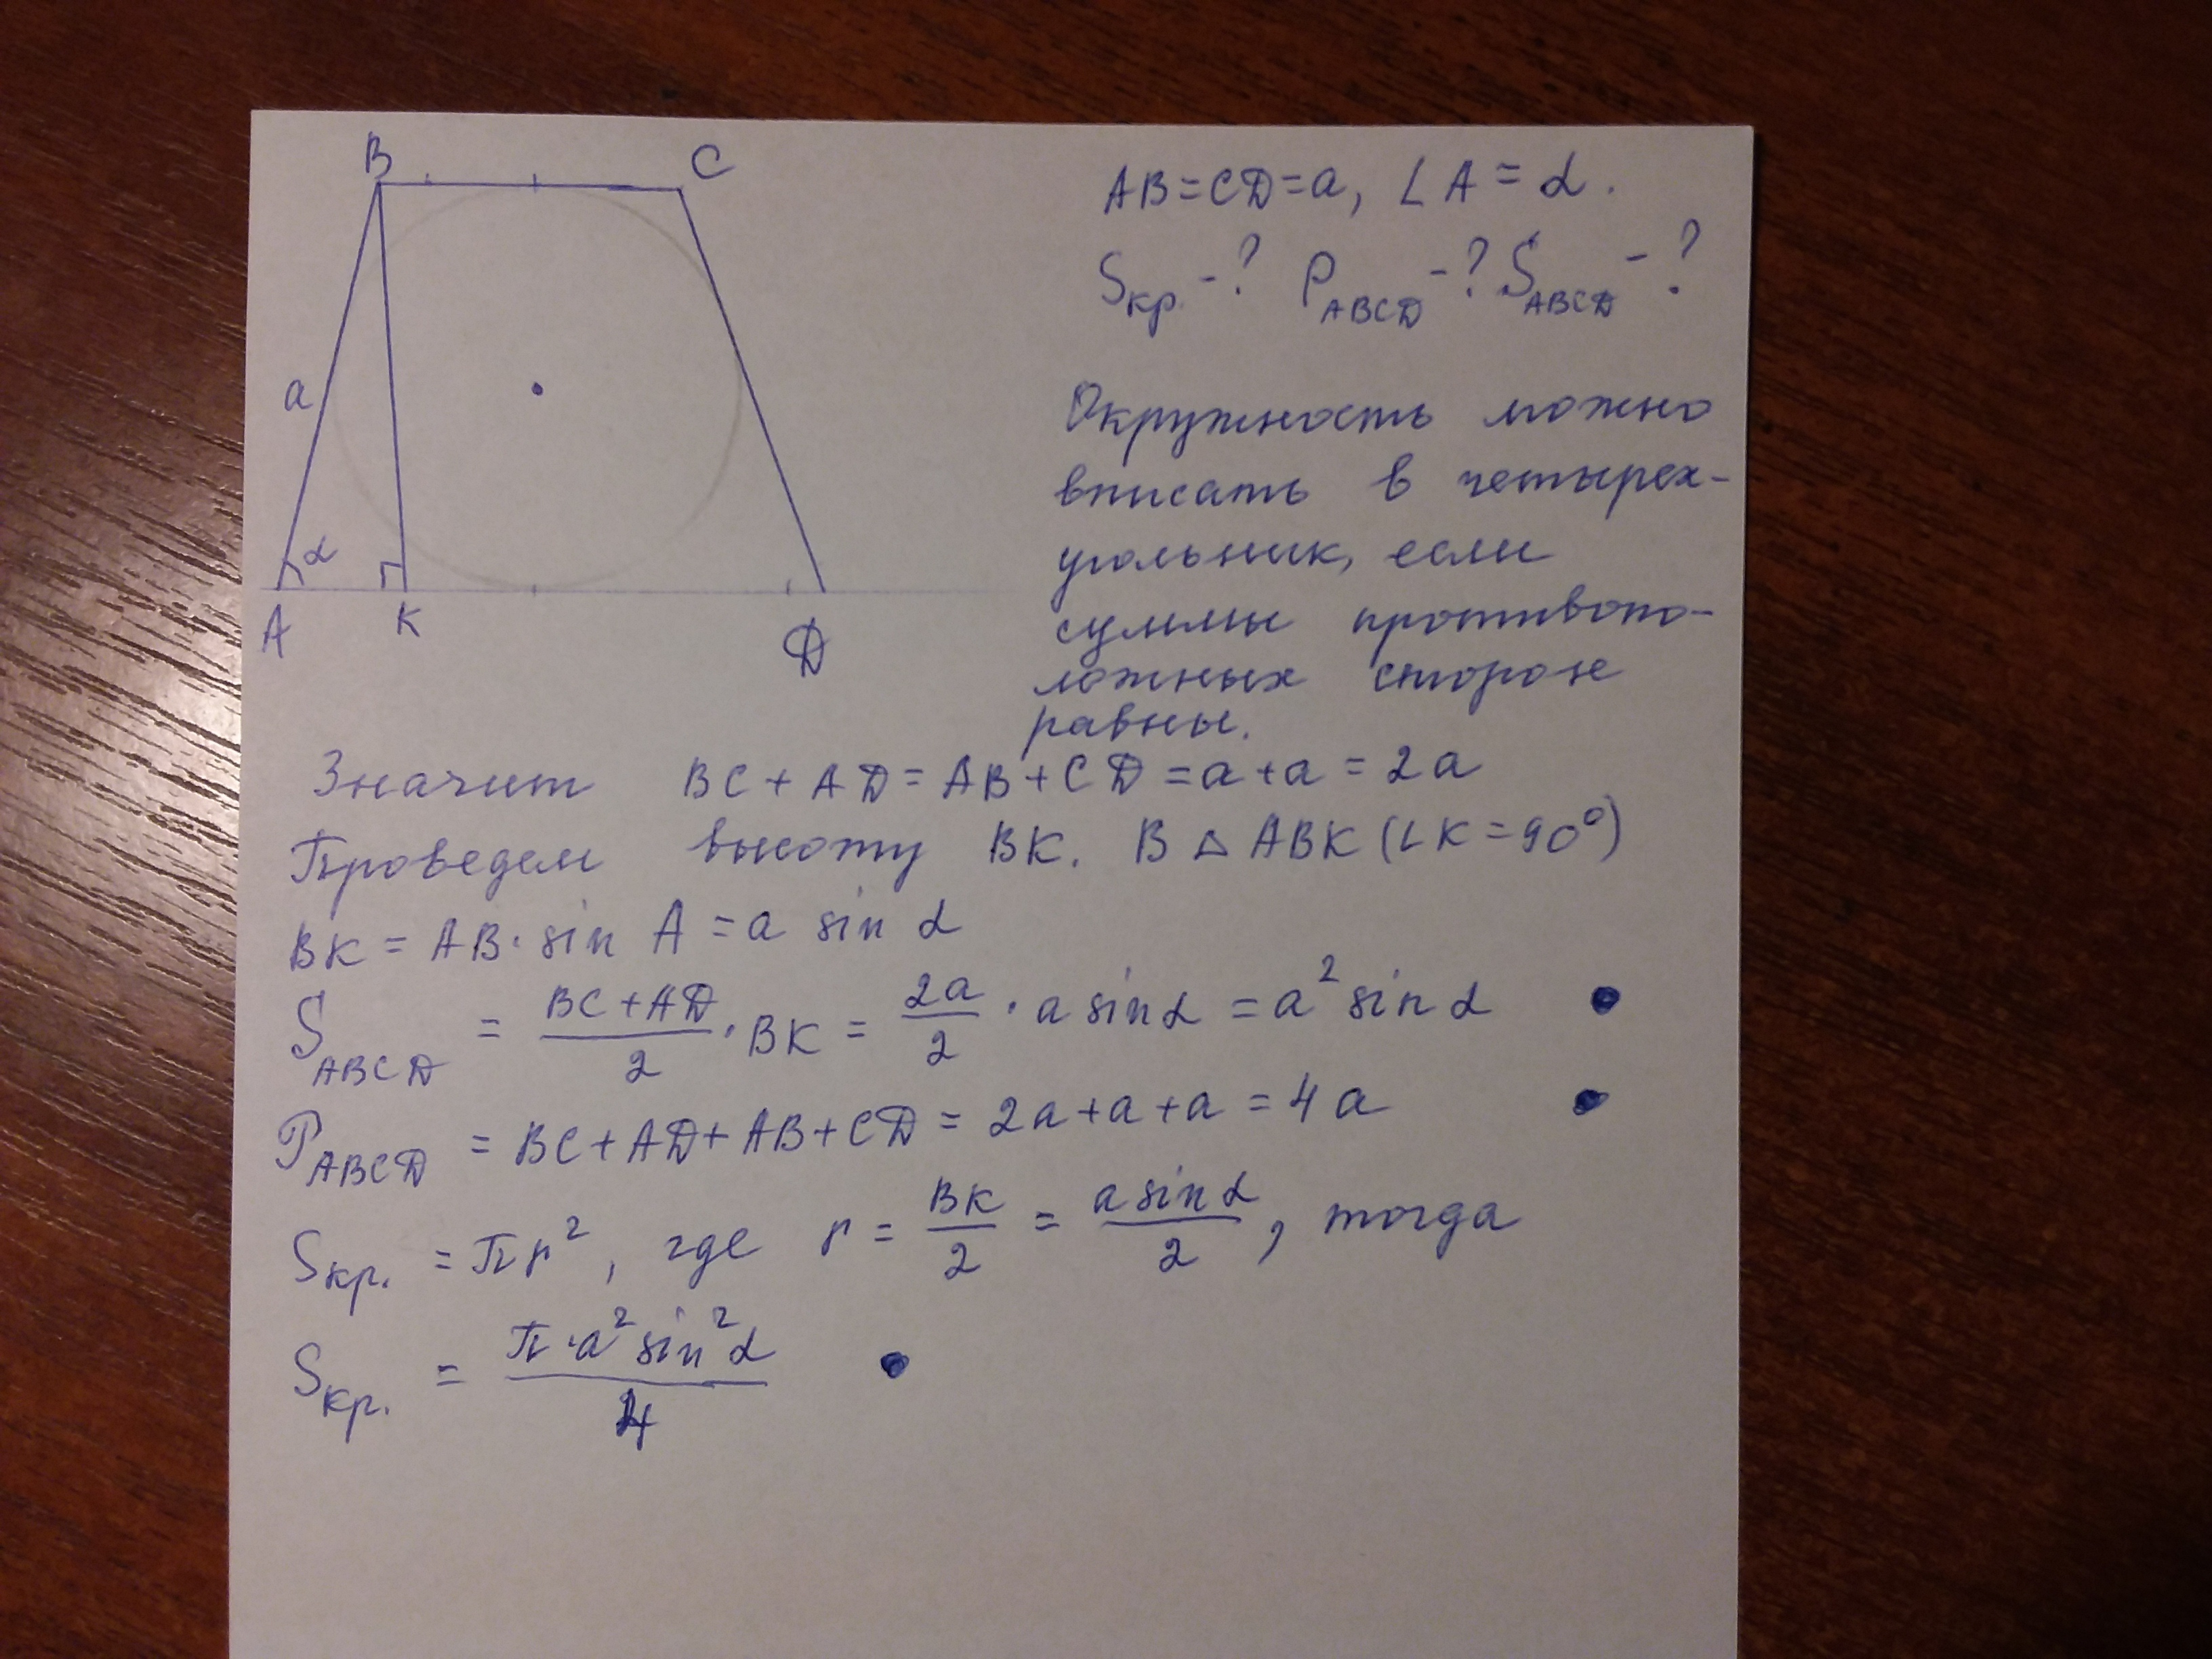 B C
a
α
A K D
AB=CD=a, ∠A=α.
Sкр. -? P_ABCD -? S_ABCD -?
Окружность можно
вписать в четырех-
угольник, если
суммы противопо-
ложных сторон
равны.
Значит BC+AD=AB+CD=a+a=2a
Проведем высоту BK. В △ABK (∠K=90°)
BK=AB·sin A=a sin α
S_ABCD = (BC+AD)/2 · BK = 2a/2 · a sin α = a² sin α
P_ABCD = BC+AD+AB+CD=2a+a+a=4a
Sкр. = πr², где r = BK/2 = a sin α/2, тогда
Sкр. = π·a² sin² α/4